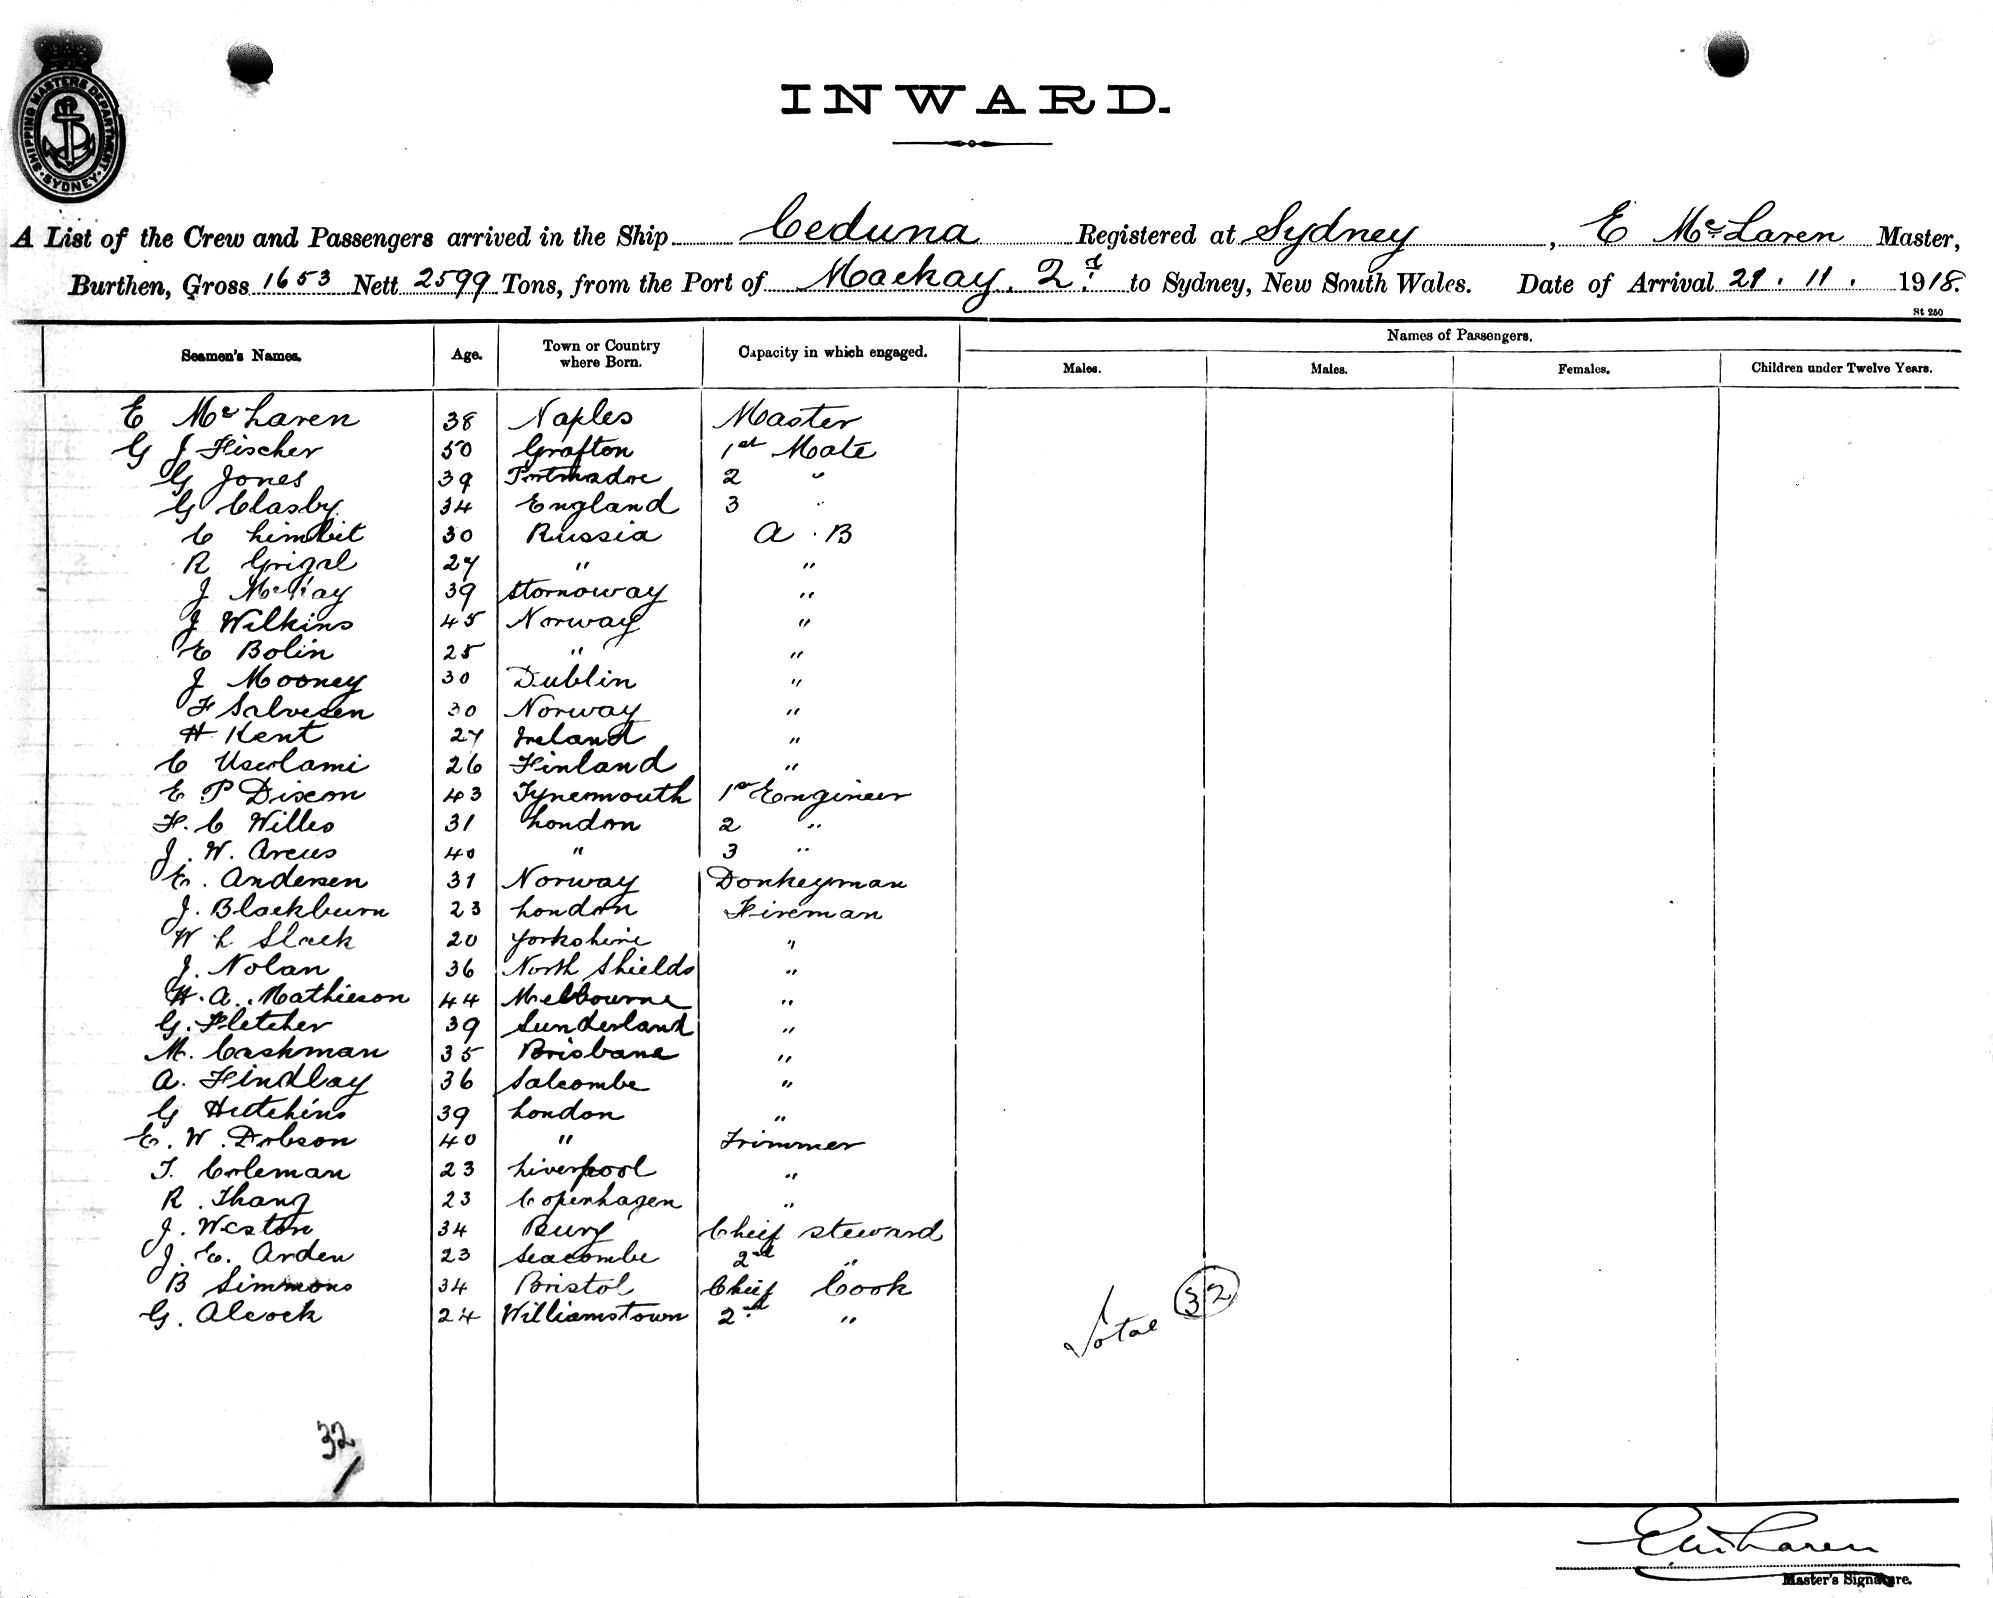 SHIPPING MASTERS DEPARTMENT
SYDNEY
INWARD.
A List of the Crew and Passengers arrived in the Ship Ceduna Registered at Sydney, E McLaren Master,
Burthen, Gross 1653 Nett 2599 Tons, from the Port of Mackay. 2d. to Sydney, New South Wales. Date of Arrival 21. 11. 1918.
St 250
Seamen's Names. Age. Town or Country where Born. Capacity in which engaged. Names of Passengers.
Males. Males. Females. Children under Twelve Years.
E McLaren 38 Naples Master
G J Fischer 50 Grafton 1st Mate
G Jones 39 Portmadoc 2 "
G Clasby 34 England 3 "
C Limbit 30 Russia A . B
R Grigal 27 " "
J McKay 39 Stornoway "
J Wilkins 45 Norway "
E Bolin 25 " "
J Mooney 30 Dublin "
F Salvesen 30 Norway "
H Kent 27 Ireland "
C 26 Finland "
E P Dixon 43 Tynemouth 1st Engineer
F. C Willes 31 London 2 "
J. W. Arcus 40 " 3 "
E. Andersen 31 Norway Donkeyman
J. Blackburn 23 London Fireman
W L Slack 20 Yorkshire "
J. Nolan 36 North Shields "
H. A. Mathieson 44 Melbourne "
G. Fletcher 39 Sunderland "
M. Cashman 35 Brisbane "
A. Findlay 36 Salcombe "
G Hutchins 39 London "
E. W. Dobson 40 " Trimmer
T. Coleman 23 Liverpool "
R. Thang 23 Copenhagen "
J. Weston 34 Bury Chief Steward
J. E. Arden 23 Seacombe 2nd "
B Simmons 34 Bristol Chief Cook
G. Alcock 24 Williamstown 2nd "
Total 32
32
E McLaren
Master's Signature.